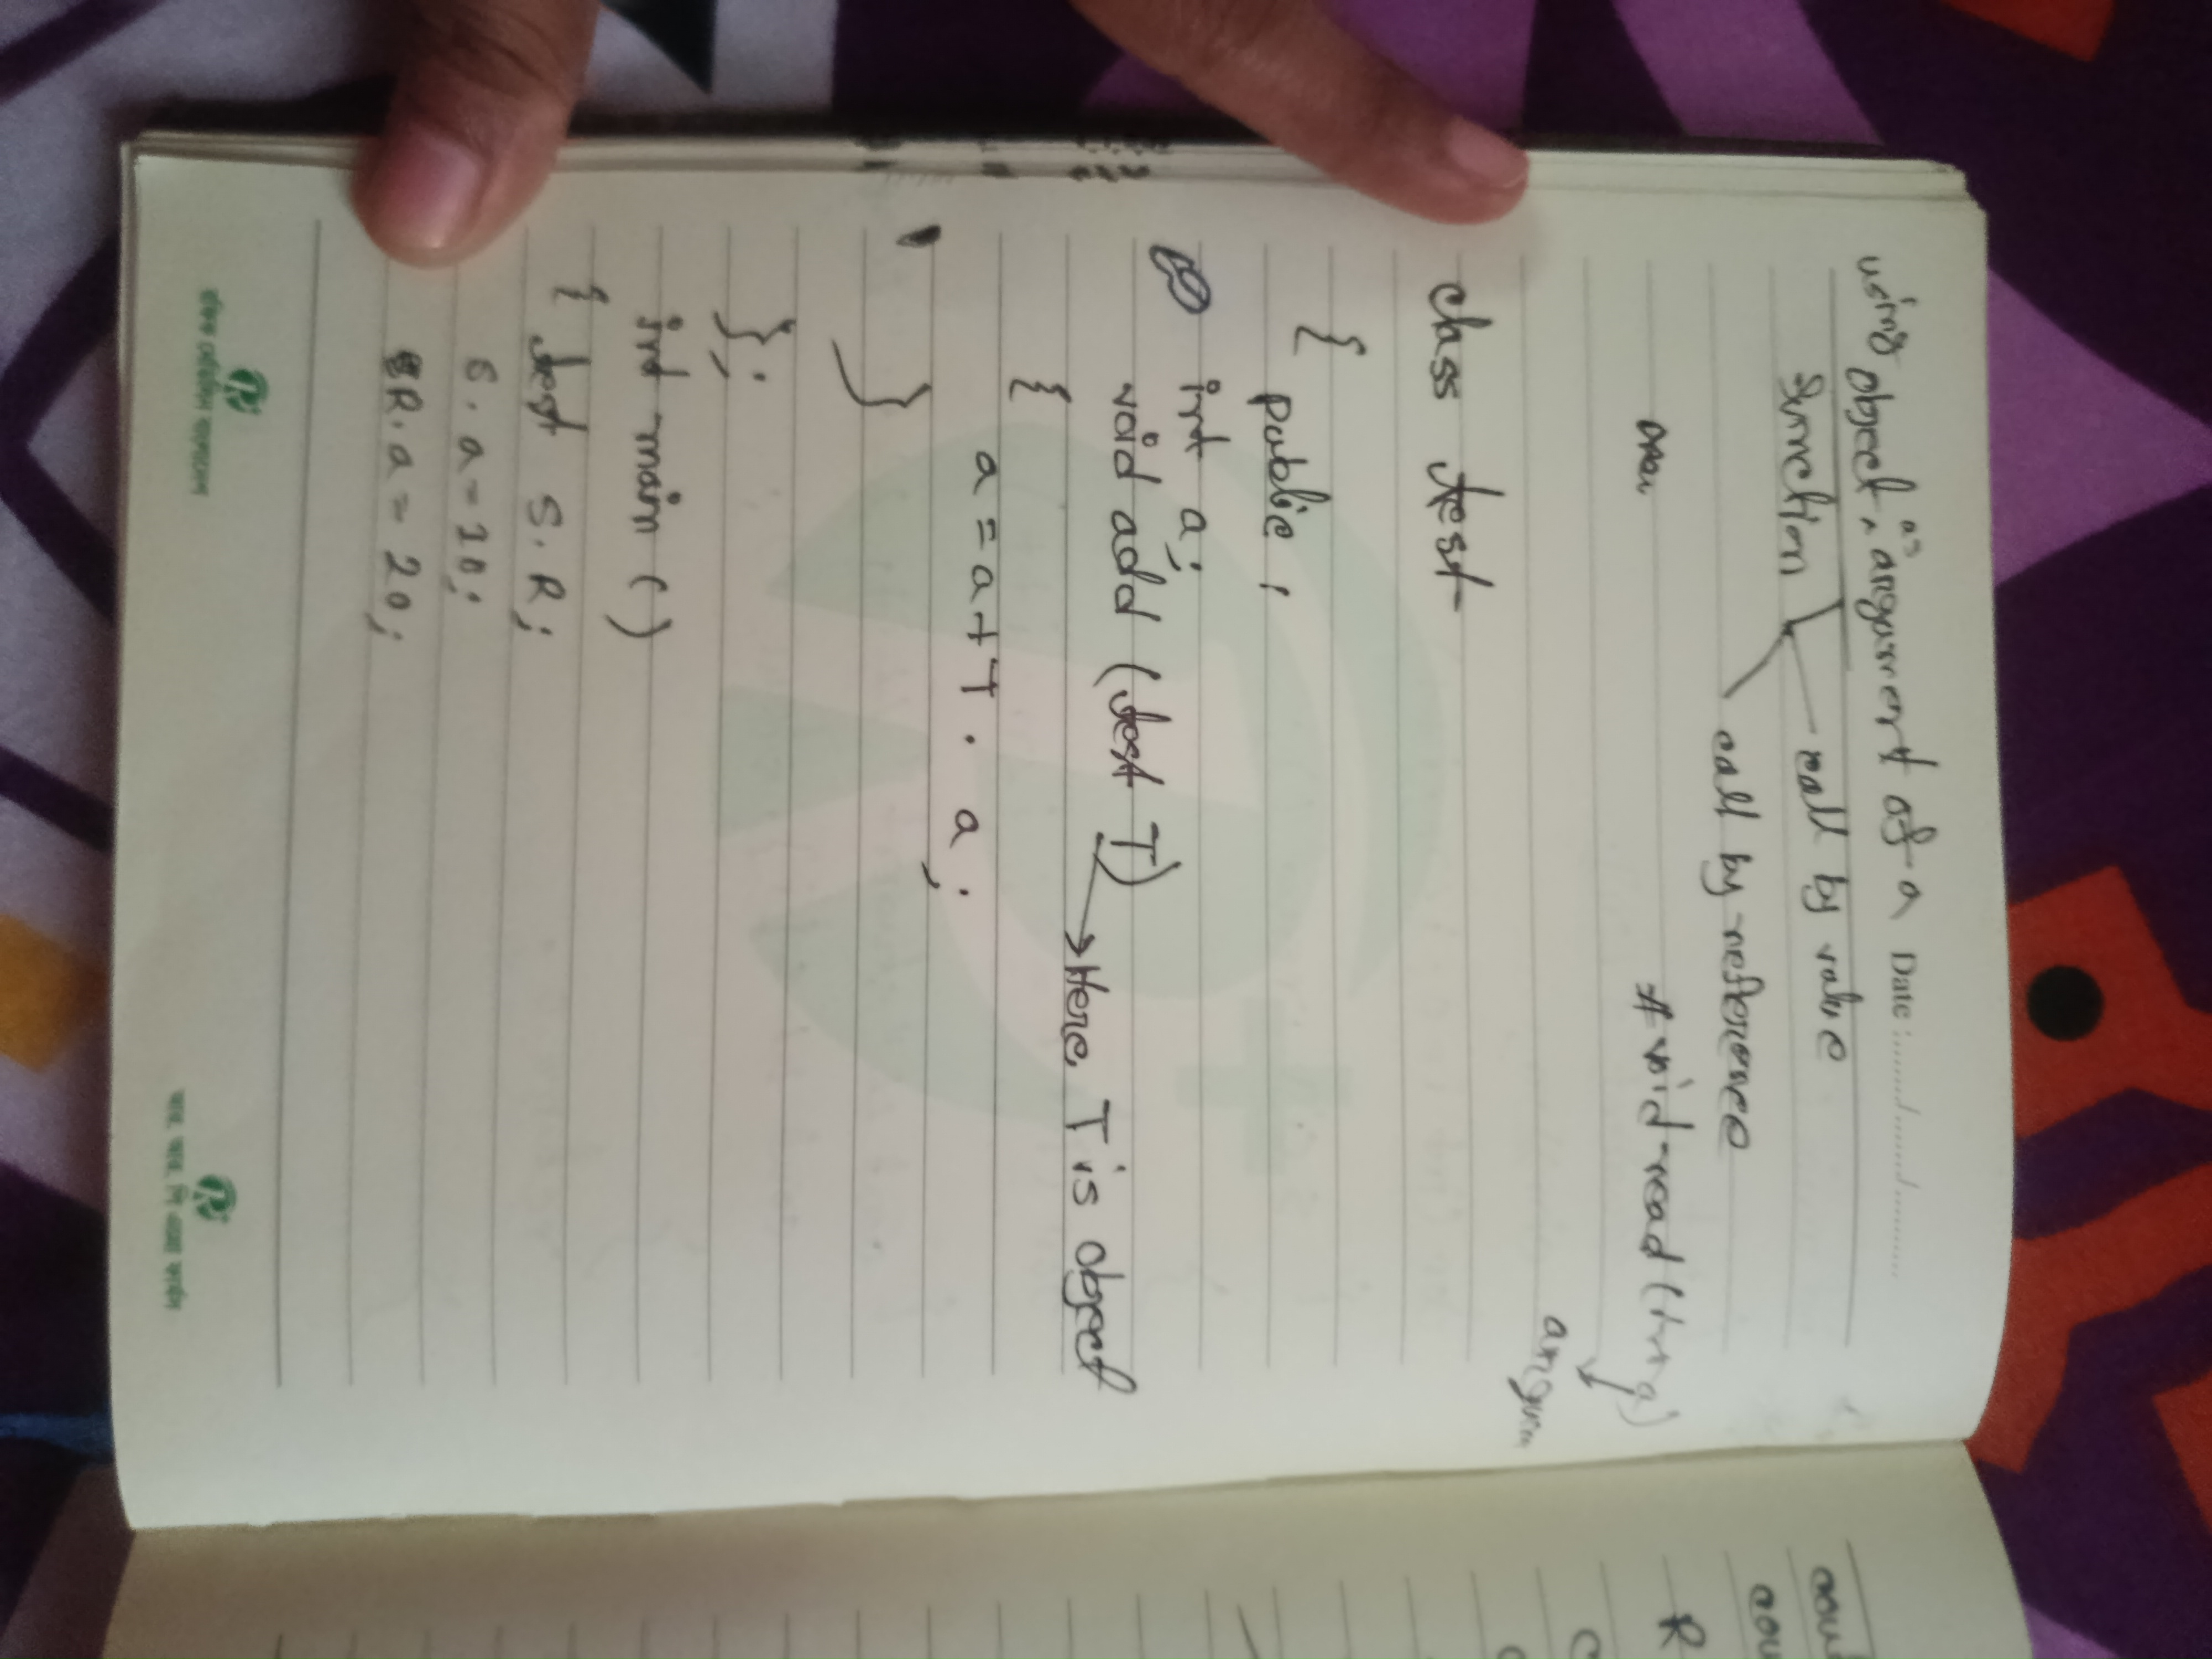 using object as argument of a Date :......../......../........
function call by value
call by reference
# void read (int a)
class test
{
public :
int a;
void add (test T)
→ Here, T is object
{
a = a + T . a ;
}
};
int main ()
{ test S . R ;
S . a = 10;
R . a = 20;